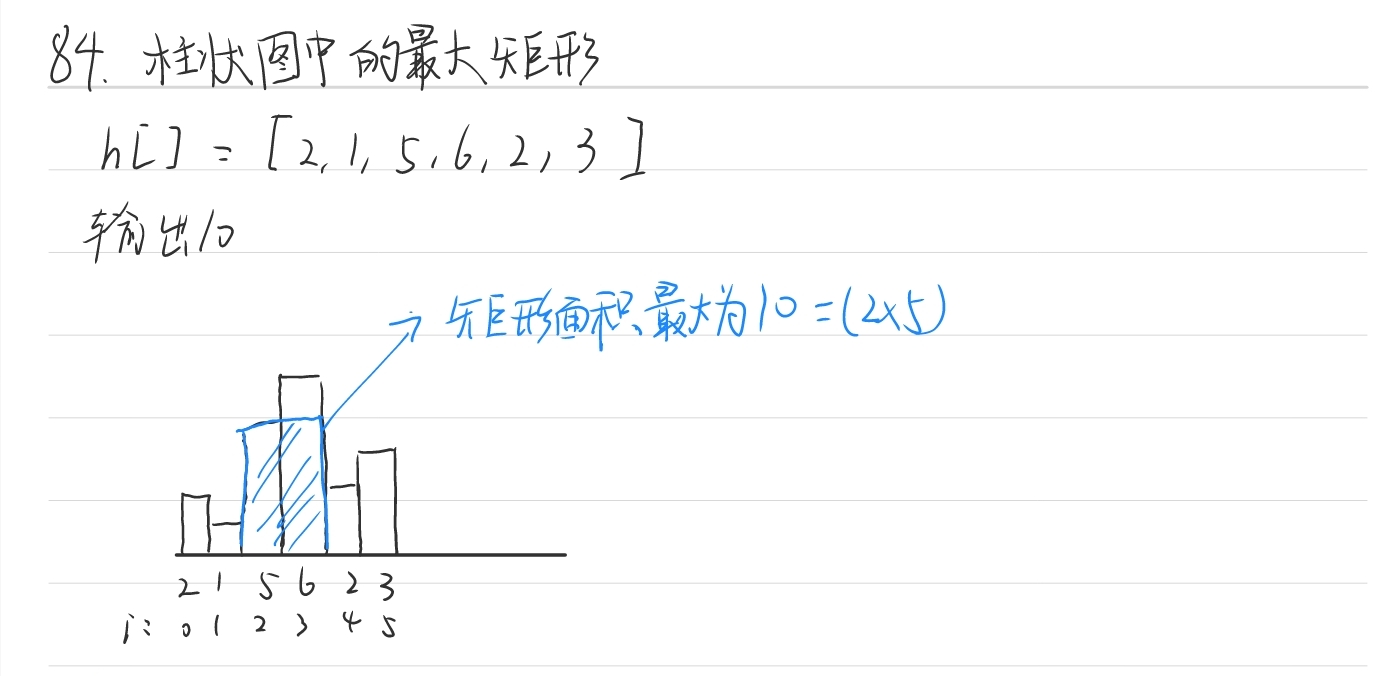 84. 柱状图中的最大矩形
h[] = [2, 1, 5, 6, 2, 3]
输出10
→ 矩形面积最大为10 = (2×5)
2 1 5 6 2 3
i: 0 1 2 3 4 5